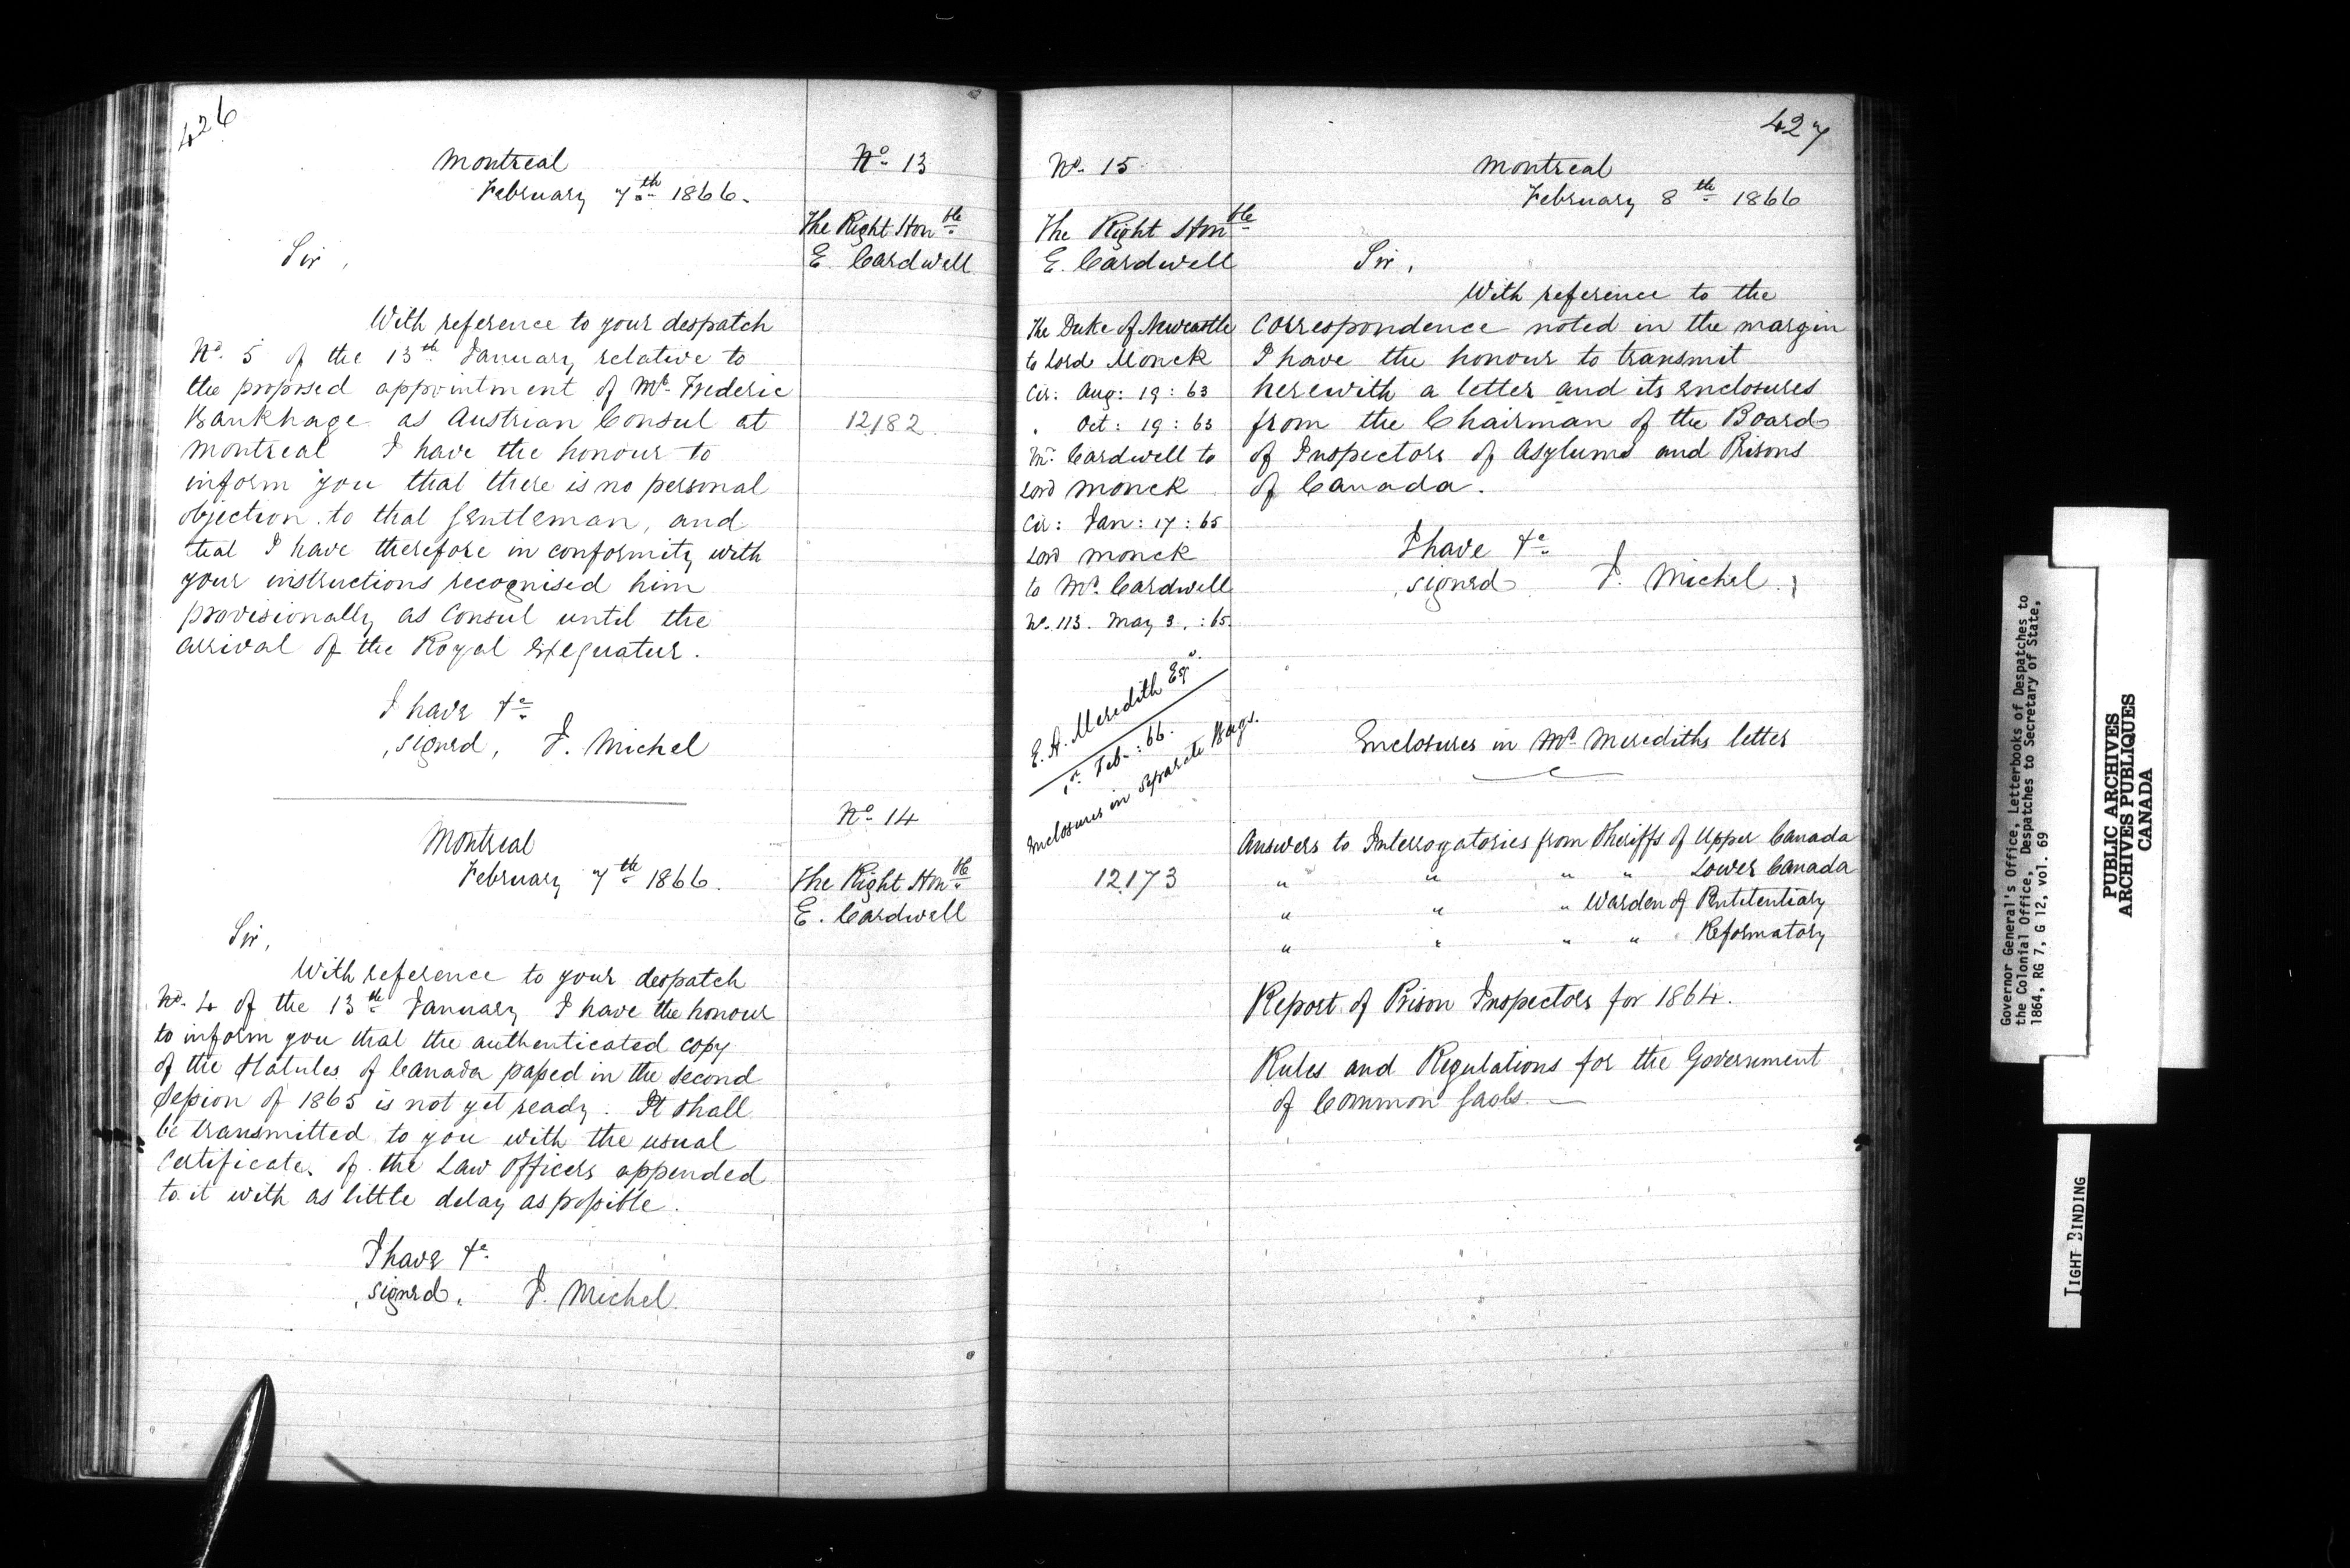 426
Montreal
February 7th 1866.
No. 13
The Right Honble
E. Cardwell
Sir,
With reference to your despatch
No. 5 of the 13th January relative to
the proposed appointment of Mr. Frederic
Bankhage as Austrian Consul at
12182
Montreal I have the honour to
inform you that there is no personal
objection to that Gentleman, and
that I have therefore in conformity with
your instructions recognised him
provisionally as Consul until the
arrival of the Royal Exequatur.
I have &c.
signed, J. Michel
No. 14
Montreal
February 7th 1866.
The Right Honble
E. Cardwell
Sir,
With reference to your despatch
No. 4 of the 13th January I have the honour
to inform you that the authenticated copy
of the Statutes of Canada passed in the second
Session of 1865 is not yet ready. It shall
be transmitted to you with the usual
Certificate of the Law Officers appended
to it with as little delay as possible.
I have &c.
signed. J. Michel.
427
No. 15
Montreal
February 8th 1866
The Right Honble
E. Cardwell
Sir,
With reference to the
correspondence noted in the margin
I have the honour to transmit
herewith a letter and its enclosures
from the Chairman of the Board
of Inspectors of Asylums and Prisons
of Canada.
I have &c.
signed J. Michel.
The Duke of Newcastle
to Lord Monck
Cir: Aug: 19: 63
" Oct: 19: 63
Mr. Cardwell to
Lord Monck
Cir: Jan: 17: 65
Lord Monck
to Mr. Cardwell
No. 113. May 3.: 65.
E. A. Meredith Esqr.
Feb.: 66.
Enclosures in separate Bags.
12173
Enclosures in Mr. Merediths letter
Answers to Interrogatories from Sheriffs of Upper Canada
" " " " Lower Canada
" " " Warden of Penitentiary
" " " " Reformatory
Report of Prison Inspectors for 1864.
Rules and Regulations for the Government
of Common Gaols. —
Governor General's Office, Letterbooks of Despatches to
the Colonial Office, Despatches to Secretary of State,
1864, RG 7, G 12, vol. 69
PUBLIC ARCHIVES
ARCHIVES PUBLIQUES
CANADA
TIGHT BINDING